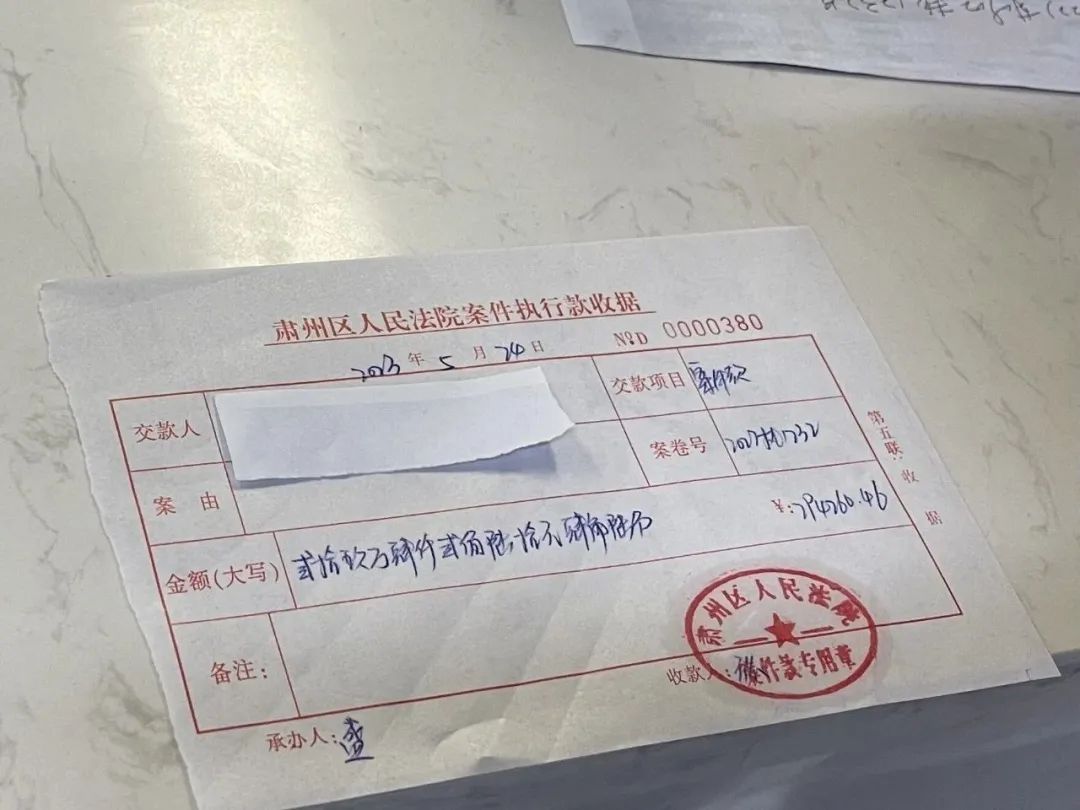 肃州区人民法院案件执行款收据
2023 年 5 月 24 日 NºD 0000380
交款人 交款项目 案件款
案由 案卷号 2023执1732
金额(大写) 贰拾玖万肆仟贰佰陆拾元肆角陆分 ¥:294260.46
备注:
承办人: 收款人:
第五联:收据
肃州区人民法院
案件款专用章